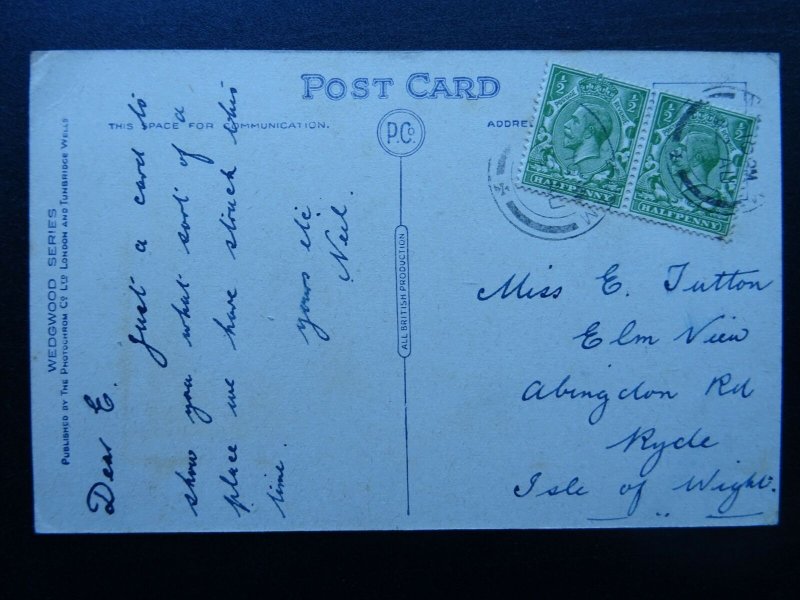 POST CARD
THIS SPACE FOR COMMUNICATION.
ADDRE
P.Co
ALL BRITISH PRODUCTION
WEDGWOOD SERIES
PUBLISHED BY THE PHOTOCHROM Co LTD LONDON AND TUNBRIDGE WELLS
Dear E.
Just a card to
show you what sort of a
place we have struck this
time.
yours etc
Neil.
½ ½
HALFPENNY
½ ½
HALFPENNY
Miss E. Tutton
Elm View
Abingdon Rd
Ryde
Isle of Wight.